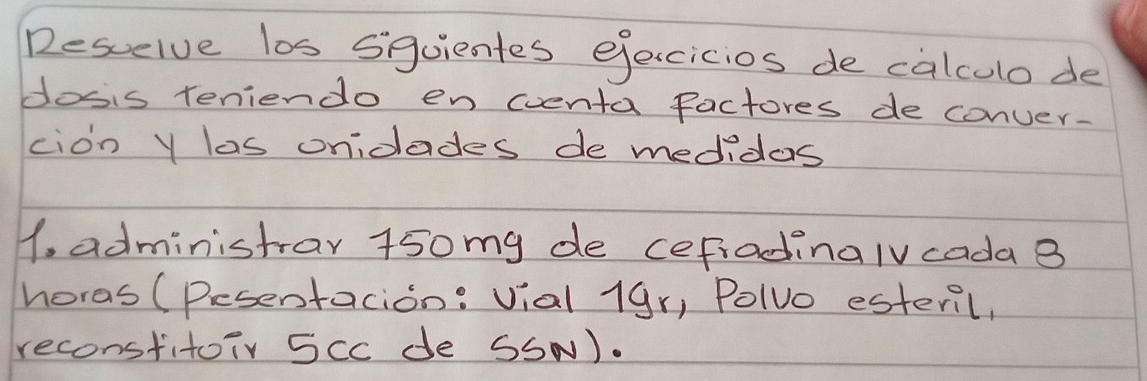 Resuelve los siguientes ejercicios de cálculo de
dosis teniendo en cuenta factores de conver-
ción y las unidades de medidas
1. administrar 750mg de cefradina IV cada 8
horas (Presentación: vial 1gr, Polvo esteril,
reconstituir 5cc de SSN).